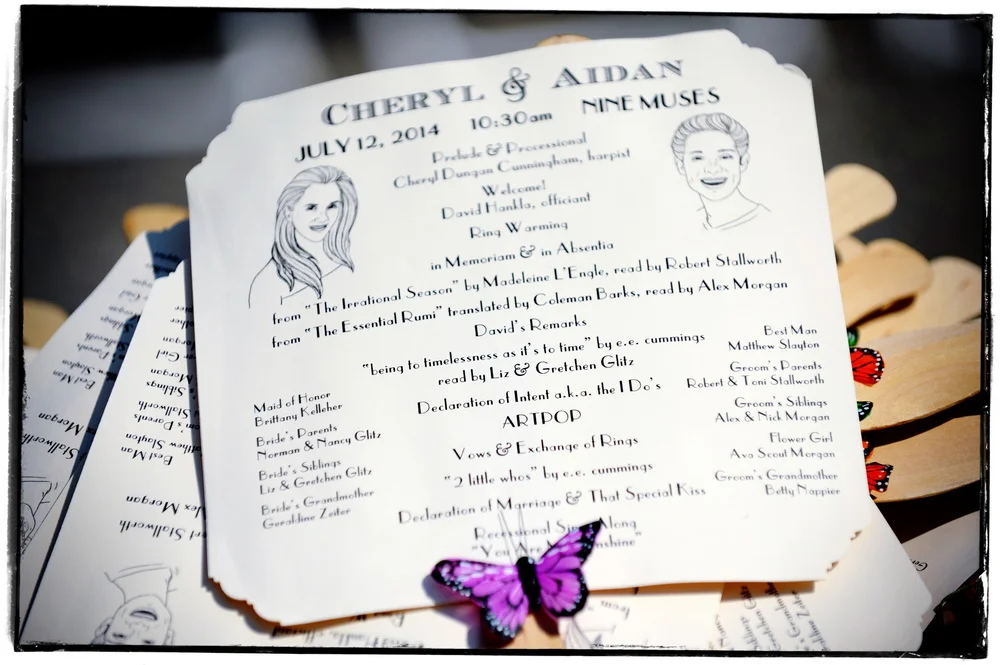 CHERYL & AIDAN
JULY 12, 2014 10:30am NINE MUSES
Prelude & Processional
Cheryl Dungan Cunningham, harpist
Welcome!
David Hankla, officiant
Ring Warming
in Memoriam & in Absentia
from "The Irrational Season" by Madeleine L'Engle, read by Robert Stallworth
from "The Essential Rumi" translated by Coleman Barks, read by Alex Morgan
David's Remarks
"being to timelessness as it's to time" by e.e. cummings
read by Liz & Gretchen Glitz
Declaration of Intent a.k.a. the I Do's
ARTPOP
Vows & Exchange of Rings
"2 little whos" by e.e. cummings
Declaration of Marriage & That Special Kiss
Recessional Sing Along
"You Are
Maid of Honor
Brittany Kelleher
Bride's Parents
Norman & Nancy Glitz
Bride's Siblings
Liz & Gretchen Glitz
Bride's Grandmother
Geraldine Zeiter
Best Man
Matthew Slayton
Groom's Parents
Robert & Toni Stallworth
Groom's Siblings
Alex & Nick Morgan
Flower Girl
Ava Scout Morgan
Groom's Grandmother
Betty Nappier